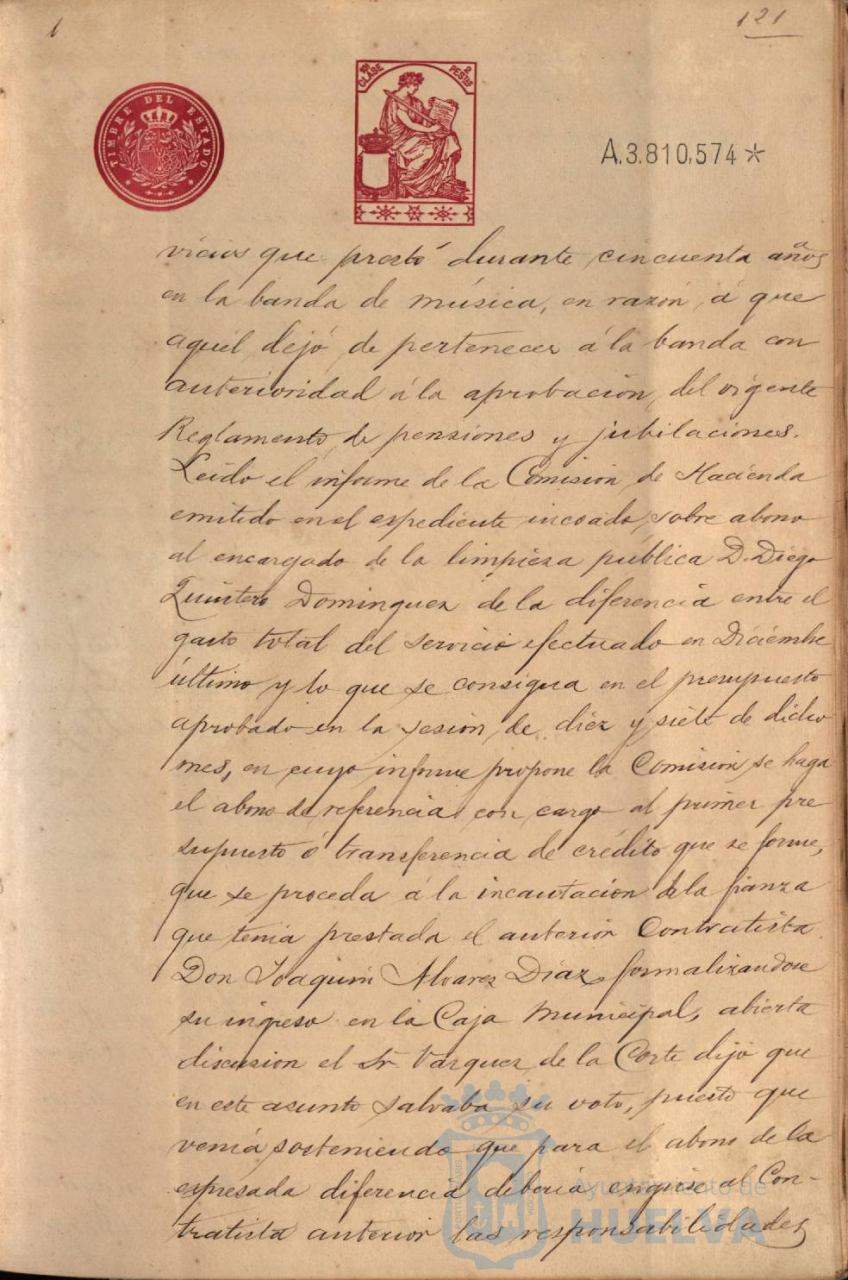 1
121
TIMBRE DEL ESTADO
10ª CLASE
2 PESTAS
A.3.810,574*
vicios que prestó durante cincuenta años
en la banda de música, en razón á que
aquél dejó de pertenecer á la banda con
anterioridad á la aprobación del vigente
Reglamento de pensiones y jubilaciones.
Leido el informe de la Comisión de Hacienda
emitido en el expediente incoado sobre abono
al encargado de la limpieza pública D. Diego
Quintero Dominguez de la diferencia entre el
gasto total del servicio efectuado en Diciembre
último y lo que se consigna en el presupuesto
aprobado en la sesión de diez y siete de dicho
mes, en cuyo informe propone la Comisión se haga
el abono de referencia con cargo al primer pre
supuesto ó transferencia de crédito que se forme,
que se proceda á la incautación de la fianza
que tenia prestada el anterior Contratista
Don Joaquin Alvarez Diaz, formalizandose
su ingreso en la Caja Municipal, abierta
discusion el Sr. Vazquez de la Corte dijo que
en este asunto salvaba su voto, puesto que
venia sosteniendo que para el abono de la
espresada diferencia deberia exigirse al Con-
tratista anterior las responsabilidades
Ayuntamiento de
HUELVA